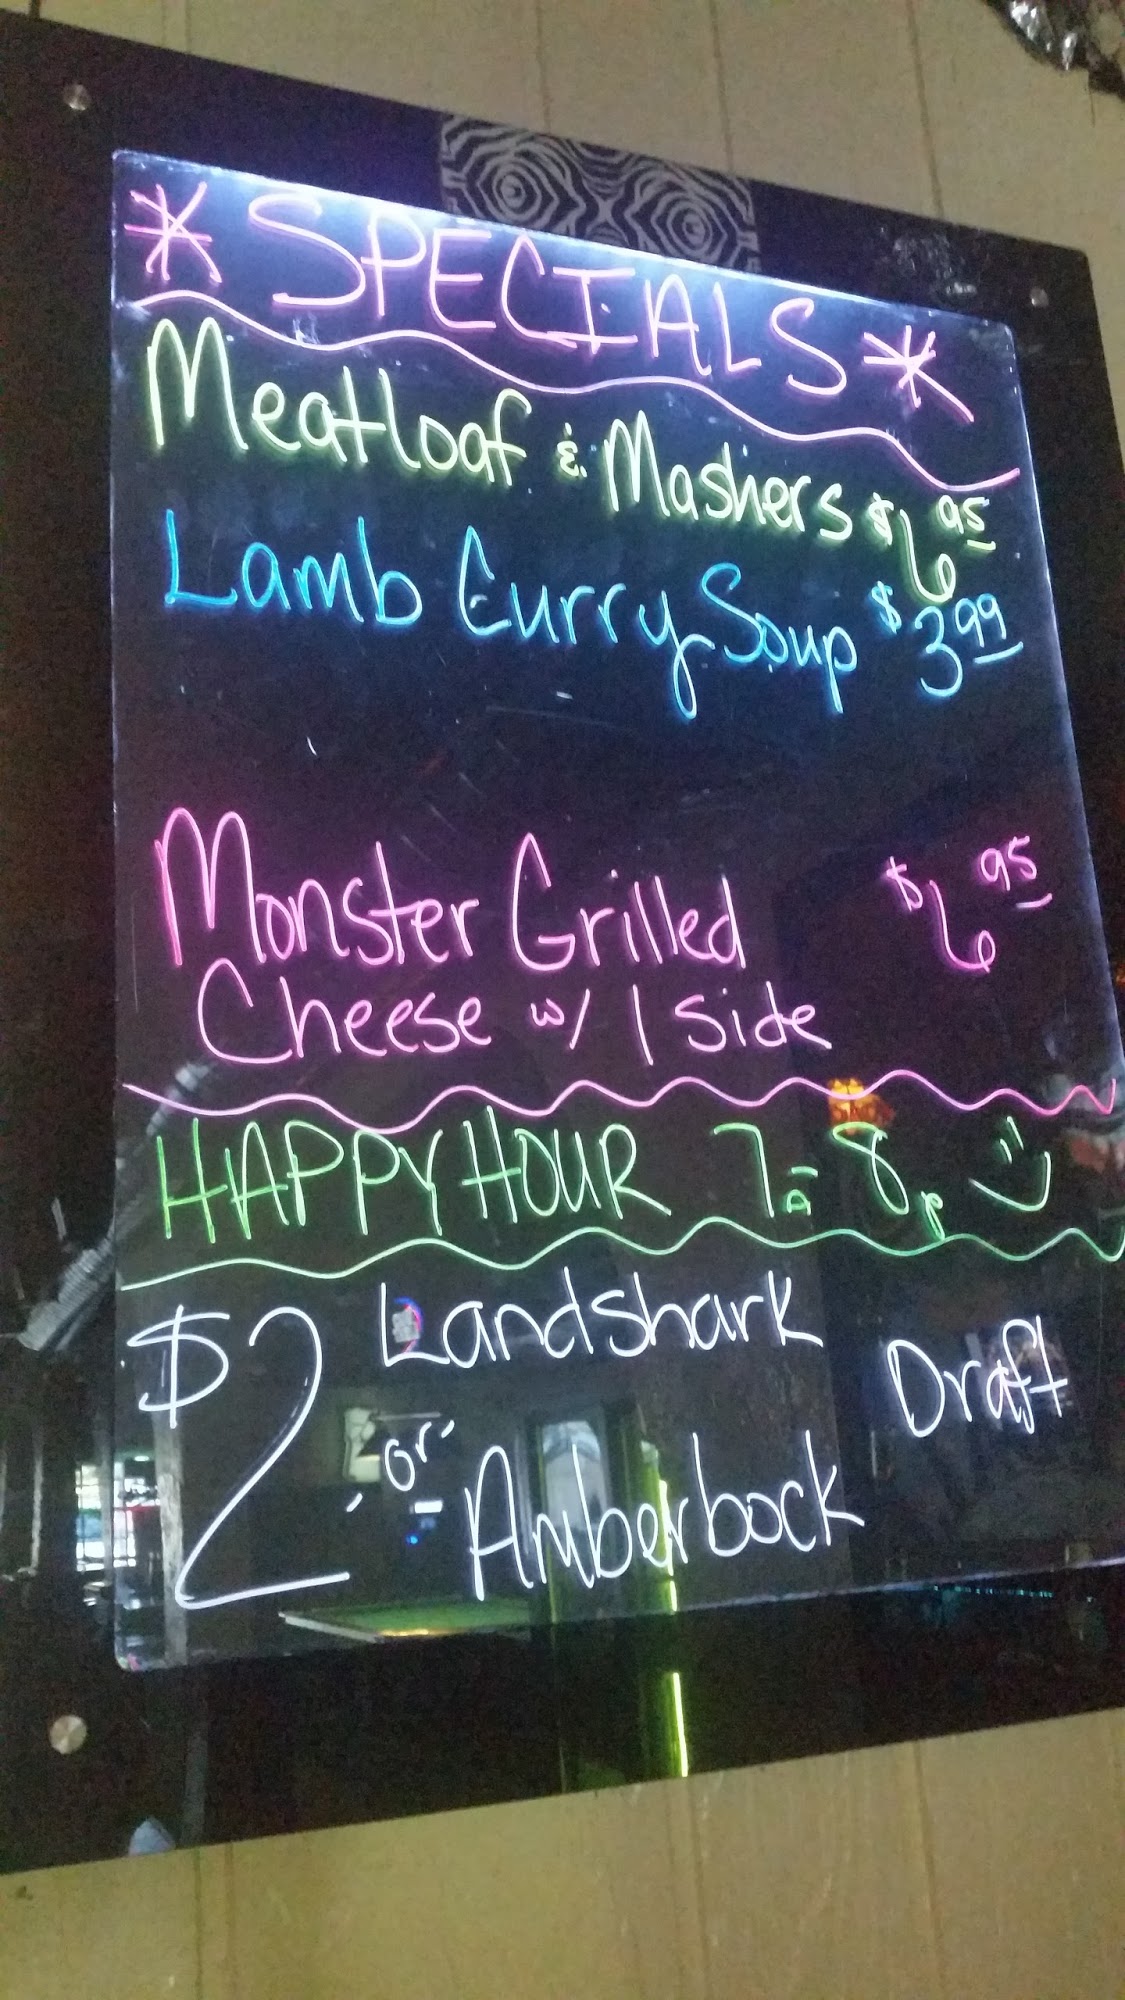 *SPECIALS*
Meatloaf & Mashers $6.95
Lamb Curry Soup $3.99
Monster Grilled $6.95
Cheese w/ 1 side
HAPPY HOUR 7a-8p
$2 Landshark Draft
-or-
Amberbock